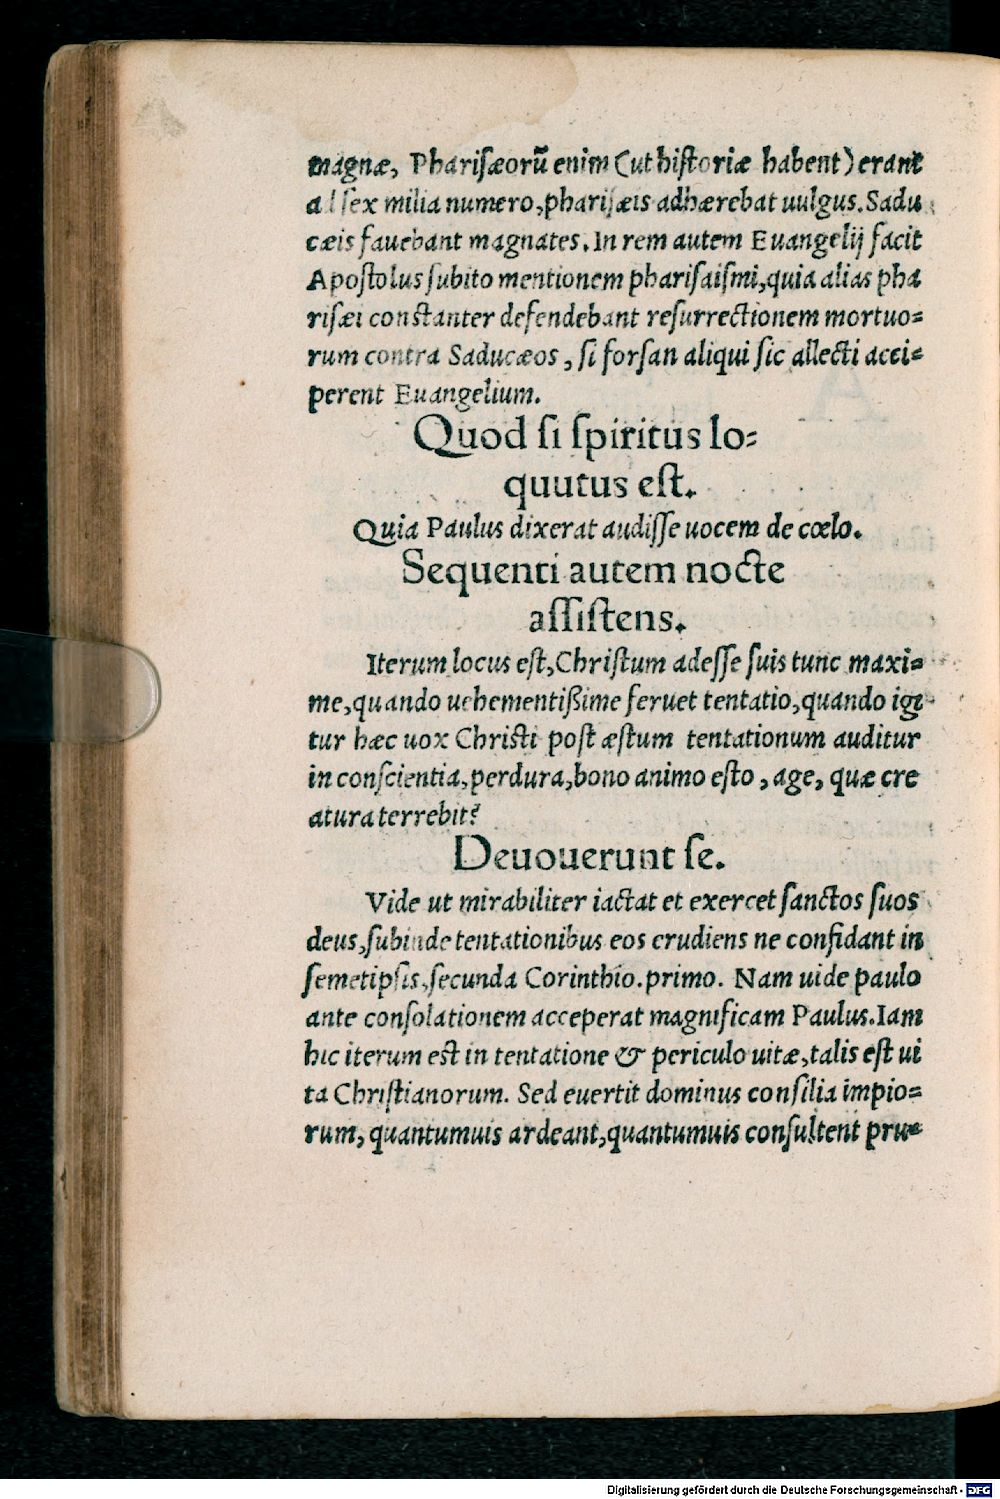 magnæ, Phariſæorũ enim (ut hiſtoriæ habent) erant
ad ſex milia numero, phariſæis adhærebat uulgus. Sadu
cæis fauebant magnates. In rem autem Euangelij facit
Apoſtolus ſubito mentionem phariſaiſmi, quia alias pha
riſæi conſtanter defendebant reſurrectionem mortuo=
rum contra Saducæos, ſi forſan aliqui ſic allecti acci=
perent Euangelium.
Quod ſi ſpiritus lo=
quutus eſt.
Quia Paulus dixerat audiſſe uocem de cœlo.
Sequenti autem nocte
aſſiſtens.
Iterum locus eſt, Chriſtum adeſſe ſuis tunc maxi=
me, quando uehementißime feruet tentatio, quando igi
tur hæc uox Chriſti poſt æſtum tentationum auditur
in conſcientia, perdura, bono animo eſto, age, quæ cre
atura terrebit?
Deuouerunt ſe.
Vide ut mirabiliter iactat et exercet ſanctos ſuos
deus, ſubinde tentationibus eos erudiens ne confidant in
ſemetipſis, ſecunda Corinthio. primo. Nam uide paulo
ante conſolationem acceperat magnificam Paulus. Iam
hic iterum eſt in tentatione & periculo uitæ, talis eſt ui
ta Chriſtianorum. Sed euertit dominus conſilia impio=
rum, quantumuis ardeant, quantumuis conſultent pru=
Digitalisierung gefördert durch die Deutsche Forschungsgemeinschaft - DFG